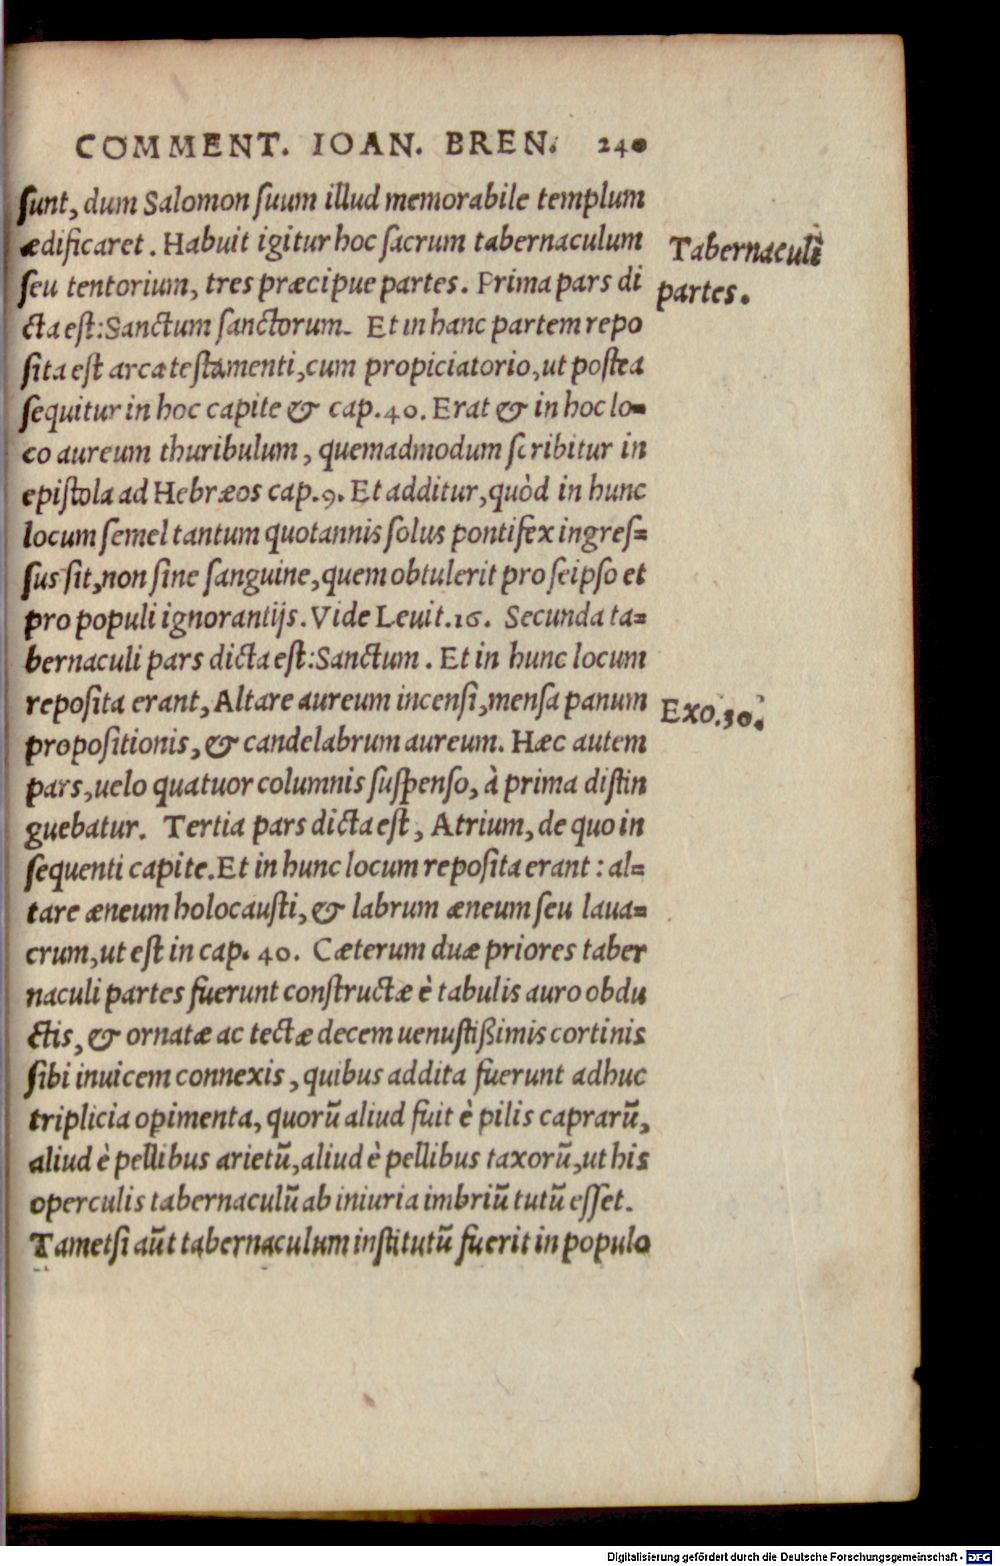 COMMENT. IOAN. BREN. 240
sunt, dum Salomon suum illud memorabile templum
ædificaret. Habuit igitur hoc sacrum tabernaculum
seu tentorium, tres præcipue partes. Prima pars di
cta est: Sanctum sanctorum. Et in hanc partem repo
sita est arca testamenti, cum propiciatorio, ut postea
sequitur in hoc capite & cap. 40. Erat & in hoc lo=
co aureum thuribulum, quemadmodum scribitur in
epistola ad Hebræos cap. 9. Et additur, quòd in hunc
locum semel tantum quotannis solus pontifex ingres=
sus sit, non sine sanguine, quem obtulerit pro seipso et
pro populi ignorantijs. Vide Leuit. 16. Secunda ta=
bernaculi pars dicta est: Sanctum. Et in hunc locum
reposita erant, Altare aureum incensi, mensa panum
propositionis, & candelabrum aureum. Hæc autem
pars, uelo quatuor columnis suspenso, à prima distin
guebatur. Tertia pars dicta est, Atrium, de quo in
sequenti capite. Et in hunc locum reposita erant: al=
tare æneum holocausti, & labrum æneum seu laua=
crum, ut est in cap. 40. Cæterum duæ priores taber
naculi partes fuerunt constructæ è tabulis auro obdu
ctis, & ornatæ ac tectæ decem uenustißimis cortinis
sibi inuicem connexis, quibus addita fuerunt adhuc
triplicia opimenta, quorū aliud fuit è pilis caprarū,
aliud è pellibus arietū, aliud è pellibus taxorū, ut his
operculis tabernaculū ab iniuria imbriū tutū esset.
Tametsi aūt tabernaculum institutū fuerit in populo
Tabernaculi
partes.
Exo. 30.
Digitalisierung gefördert durch die Deutsche Forschungsgemeinschaft - DFG